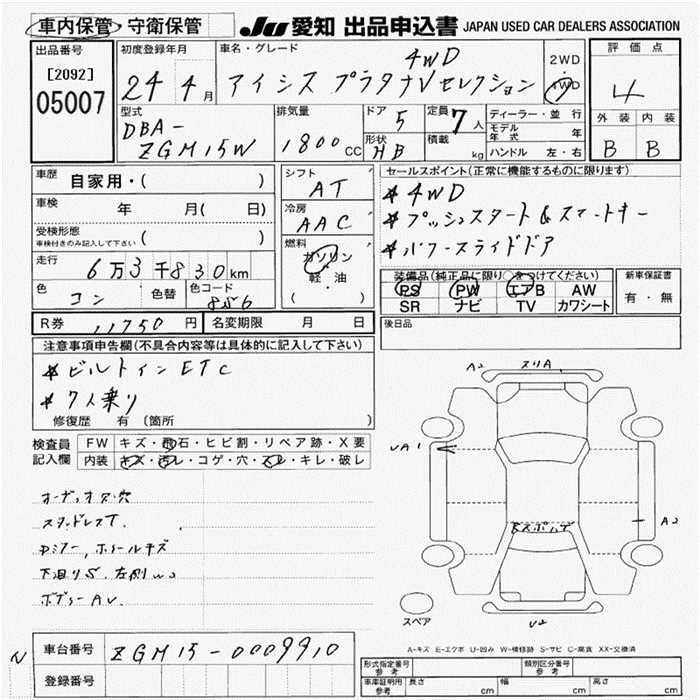 車内保管・守衛保管
JU 愛知 出品申込書 JAPAN USED CAR DEALERS ASSOCIATION
出品番号
[2092]
05007
初度登録年月
24年4月
車名・グレード
4WD
アイシス プラタナVセレクション
2WD
・
4WD
評価点
4
外装 内装
B B
型式
DBA-
ZGM15W
排気量
1800 CC
ドア 5
形状 HB
定員 7人
積載 kg
ディーラー・並行
モデル年式 年
ハンドル 左・右
車歴 自家用・( )
車検 年 月( 日)
受検形態
車検付きのみ記入して下さい ( )
走行 6万3千830km
色 コン 色替 色コード 8S6
シフト AT
冷房 AAC
燃料
ガソリン
軽・油
( )
セールスポイント(正常に機能するものに限ります)
*4WD
*プッシュスタート&スマートキー
*パワースライドドア
装備品(純正品に限り○をつけてください)
PS PW エアB AW
SR ナビ TV カワシート
新車保証書
有・無
R券 11750円 名変期限 月 日
後日品
注意事項申告欄(不具合内容等は具体的に記入して下さい)
*ビルトインETC
*7人乗り
修復歴 有 〔箇所 〕
検査員
記入欄
FW キズ・飛石・ヒビ割・リペア跡・X要
内装 キズ・汚レ・コゲ・穴・スレ・キレ・破レ
オーディオ穴
スタッドレスT.
Dミラー,ホイールキズ
下廻りS.左側W2
ボディーAV.
A2 スリA
UA1
Bスポハゲ
A2
U2
スペア
A-キズ E-エクボ U-凹み W-補修跡 S-サビ C-腐食 XX-交換済
N
車台番号 ZGM15-0009910
登録番号
形式指定番号 参考
類別区分番号 参考
車庫証明用 参考 長さ cm 幅 cm 高さ cm